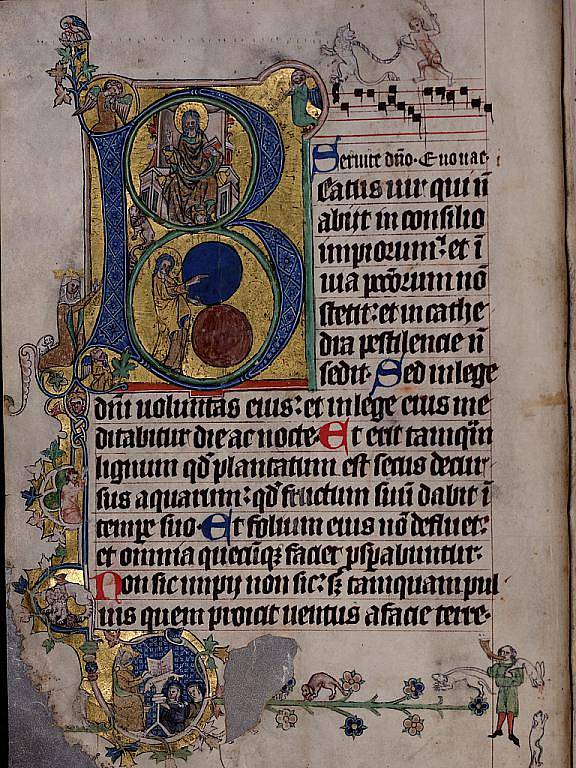 Seruite dño. Euouae.
B
eatus uir qui ñ
abijt in consilio
impiorum: et ĩ
uia pccõrum nõ
stetit: et in cathe
dra pestilencie ñ
sedit. Sed in lege
dñi uoluntas eius: et in lege eius me
ditabitur die ac nocte. Et erit tamq̃m
lignum qd̃ plantatum est secus decur
sus aquarum: qd̃ fructum suũ dabit ĩ
tempe suo. Et folium eius nõ defluet:
et omnia quecũq; faciet psꝑabuntur.
Non sic impij non sic: sꝫ tamquam pul
uis quem proicit uentus a facie terre.